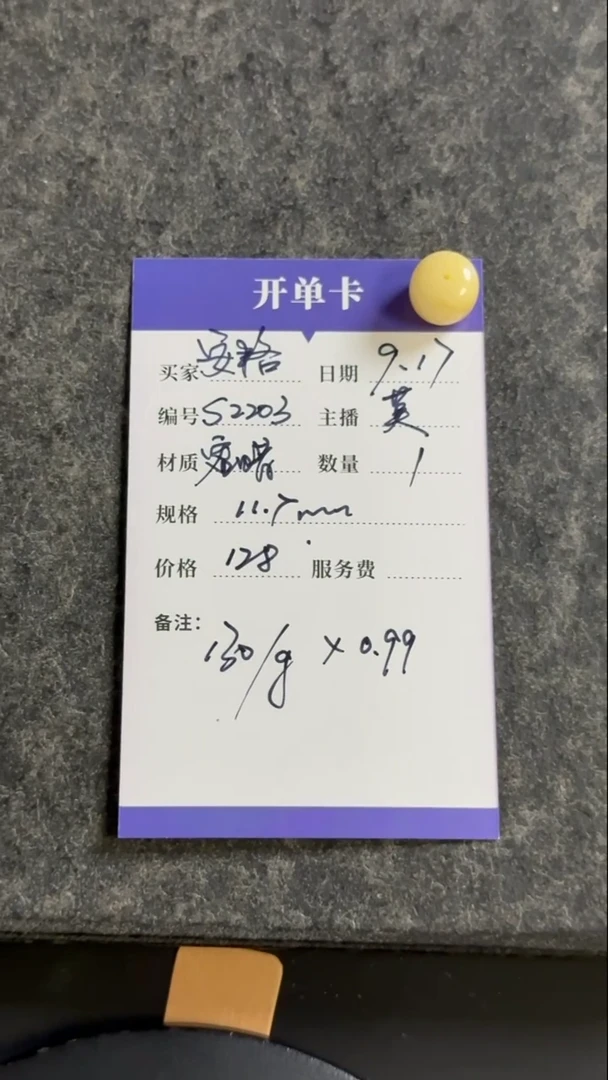 开单卡
买家 安格 日期 9.17
编号 S2203 主播 英
材质 蜜蜡 数量 1
规格 11.7mm
价格 128 服务费
备注:
130/g × 0.99